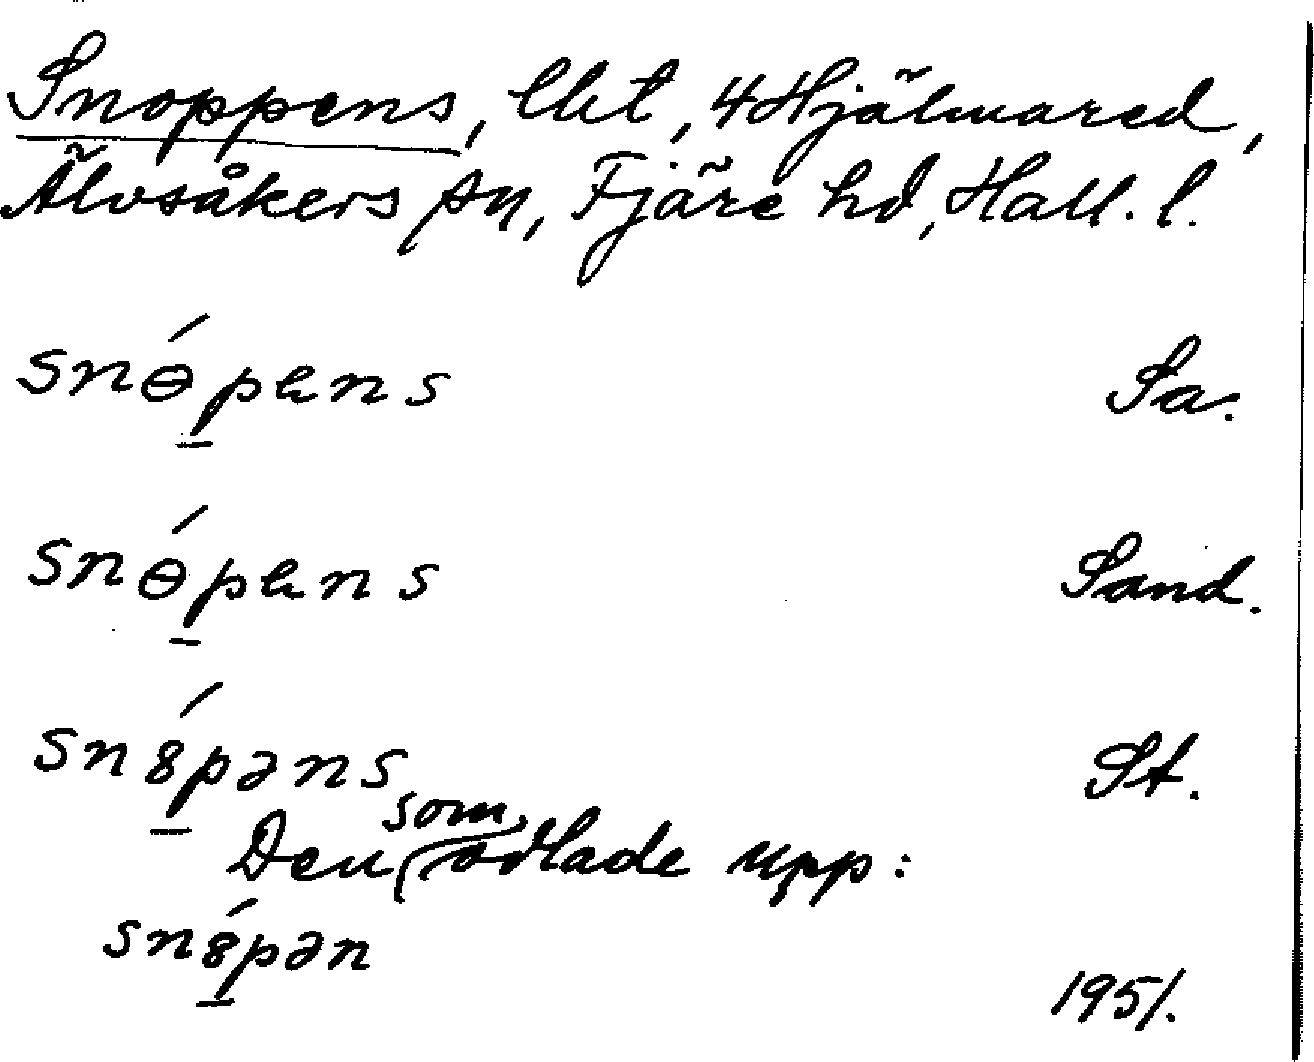 Snoppens, lht, 4 Hjälmared,
Älvsåkers sn, Fjäre hd, Hall. l.
snɵ́pens Sa.
snɵ́pens Sand.
sn8́pəns St.
Den som odlade upp:
sn8́pən
1951.